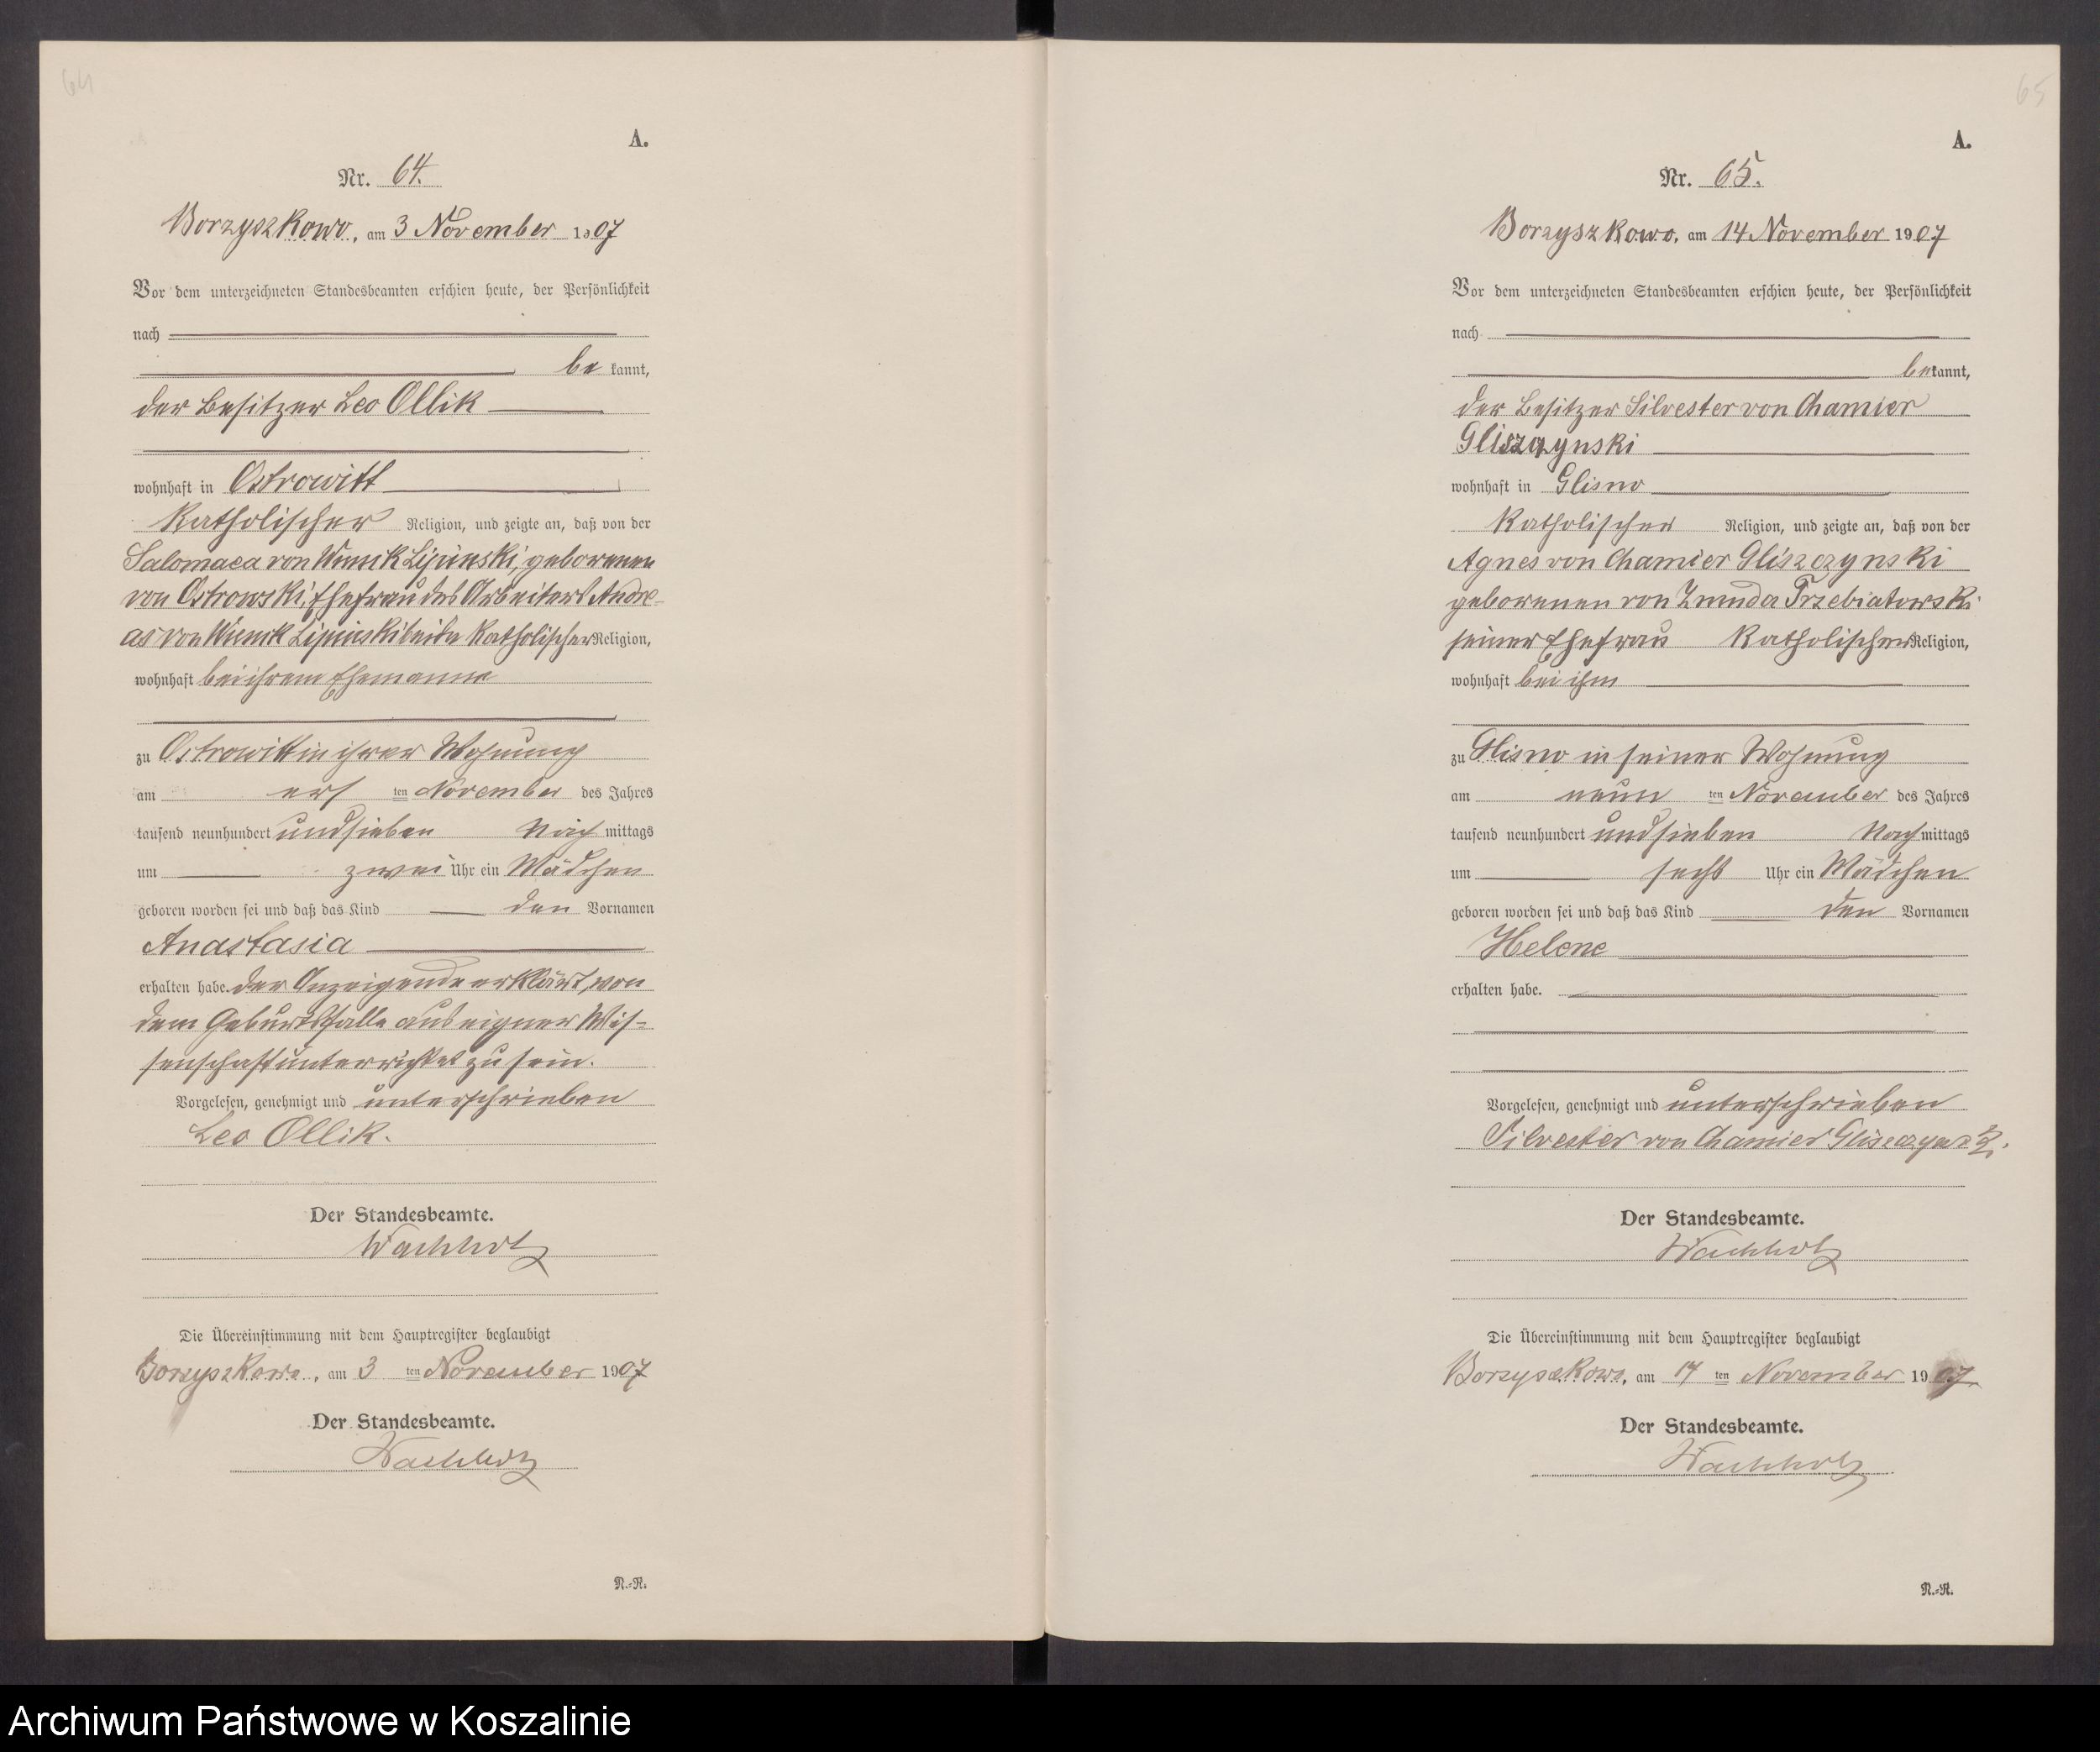 64
A.
Nr. 64.
Borzyszkowo, am 3 November 1907
Vor dem unterzeichneten Standesbeamten erschien heute, der Persönlichkeit
nach
be kannt,
der Besitzer Leo Ollik
wohnhaft in Ostrowitt
Katholischer Religion, und zeigte an, daß von der
Salomaea von Lipinski, geborenen
von Ostrowski, Ehefrau des Arbeiters Andre-
as von Lipinski beide Katholischer Religion,
wohnhaft bei ihrem Ehemanne
zu Ostrowitt in ihrer Wohnung
am ers ten November des Jahres
tausend neunhundert und sieben Nach mittags
um zwei Uhr ein Mädchen
geboren worden sei und daß das Kind den Vornamen
Anastasia
erhalten habe. Der Anzeigende erklärt, von
dem Geburtsfalle aus eigner Wis-
senschaft unterrichtet zu sein.
Vorgelesen, genehmigt und unterschrieben
Leo Ollik.
Der Standesbeamte.
Wachholz
Die Übereinstimmung mit dem Hauptregister beglaubigt
Borzyszkowo, am 3 ten November 1907
Der Standesbeamte.
Wachholz
N.-R.
65
A.
Nr. 65.
Borzyszkowo, am 14 November 1907
Vor dem unterzeichneten Standesbeamten erschien heute, der Persönlichkeit
nach
bekannt,
der Besitzer Silvester von Chamier
Gliszczynski
wohnhaft in Glisno
Katholischer Religion, und zeigte an, daß von der
Agnes von Chamier Gliszczynski
geborenen von Zmuda Trzebiatowski
seiner Ehefrau Katholischer Religion,
wohnhaft bei ihm
zu Glisno in seiner Wohnung
am neun ten November des Jahres
tausend neunhundert und sieben Nachmittags
um sechs Uhr ein Mädchen
geboren worden sei und daß das Kind den Vornamen
Helene
erhalten habe.
Vorgelesen, genehmigt und unterschrieben
Silvester von Chamier Gliszczynski.
Der Standesbeamte.
Wachholz
Die Übereinstimmung mit dem Hauptregister beglaubigt
Borzyszkowo, am 14 ten November 1907
Der Standesbeamte.
Wachholz
N.-R.
Archiwum Państwowe w Koszalinie